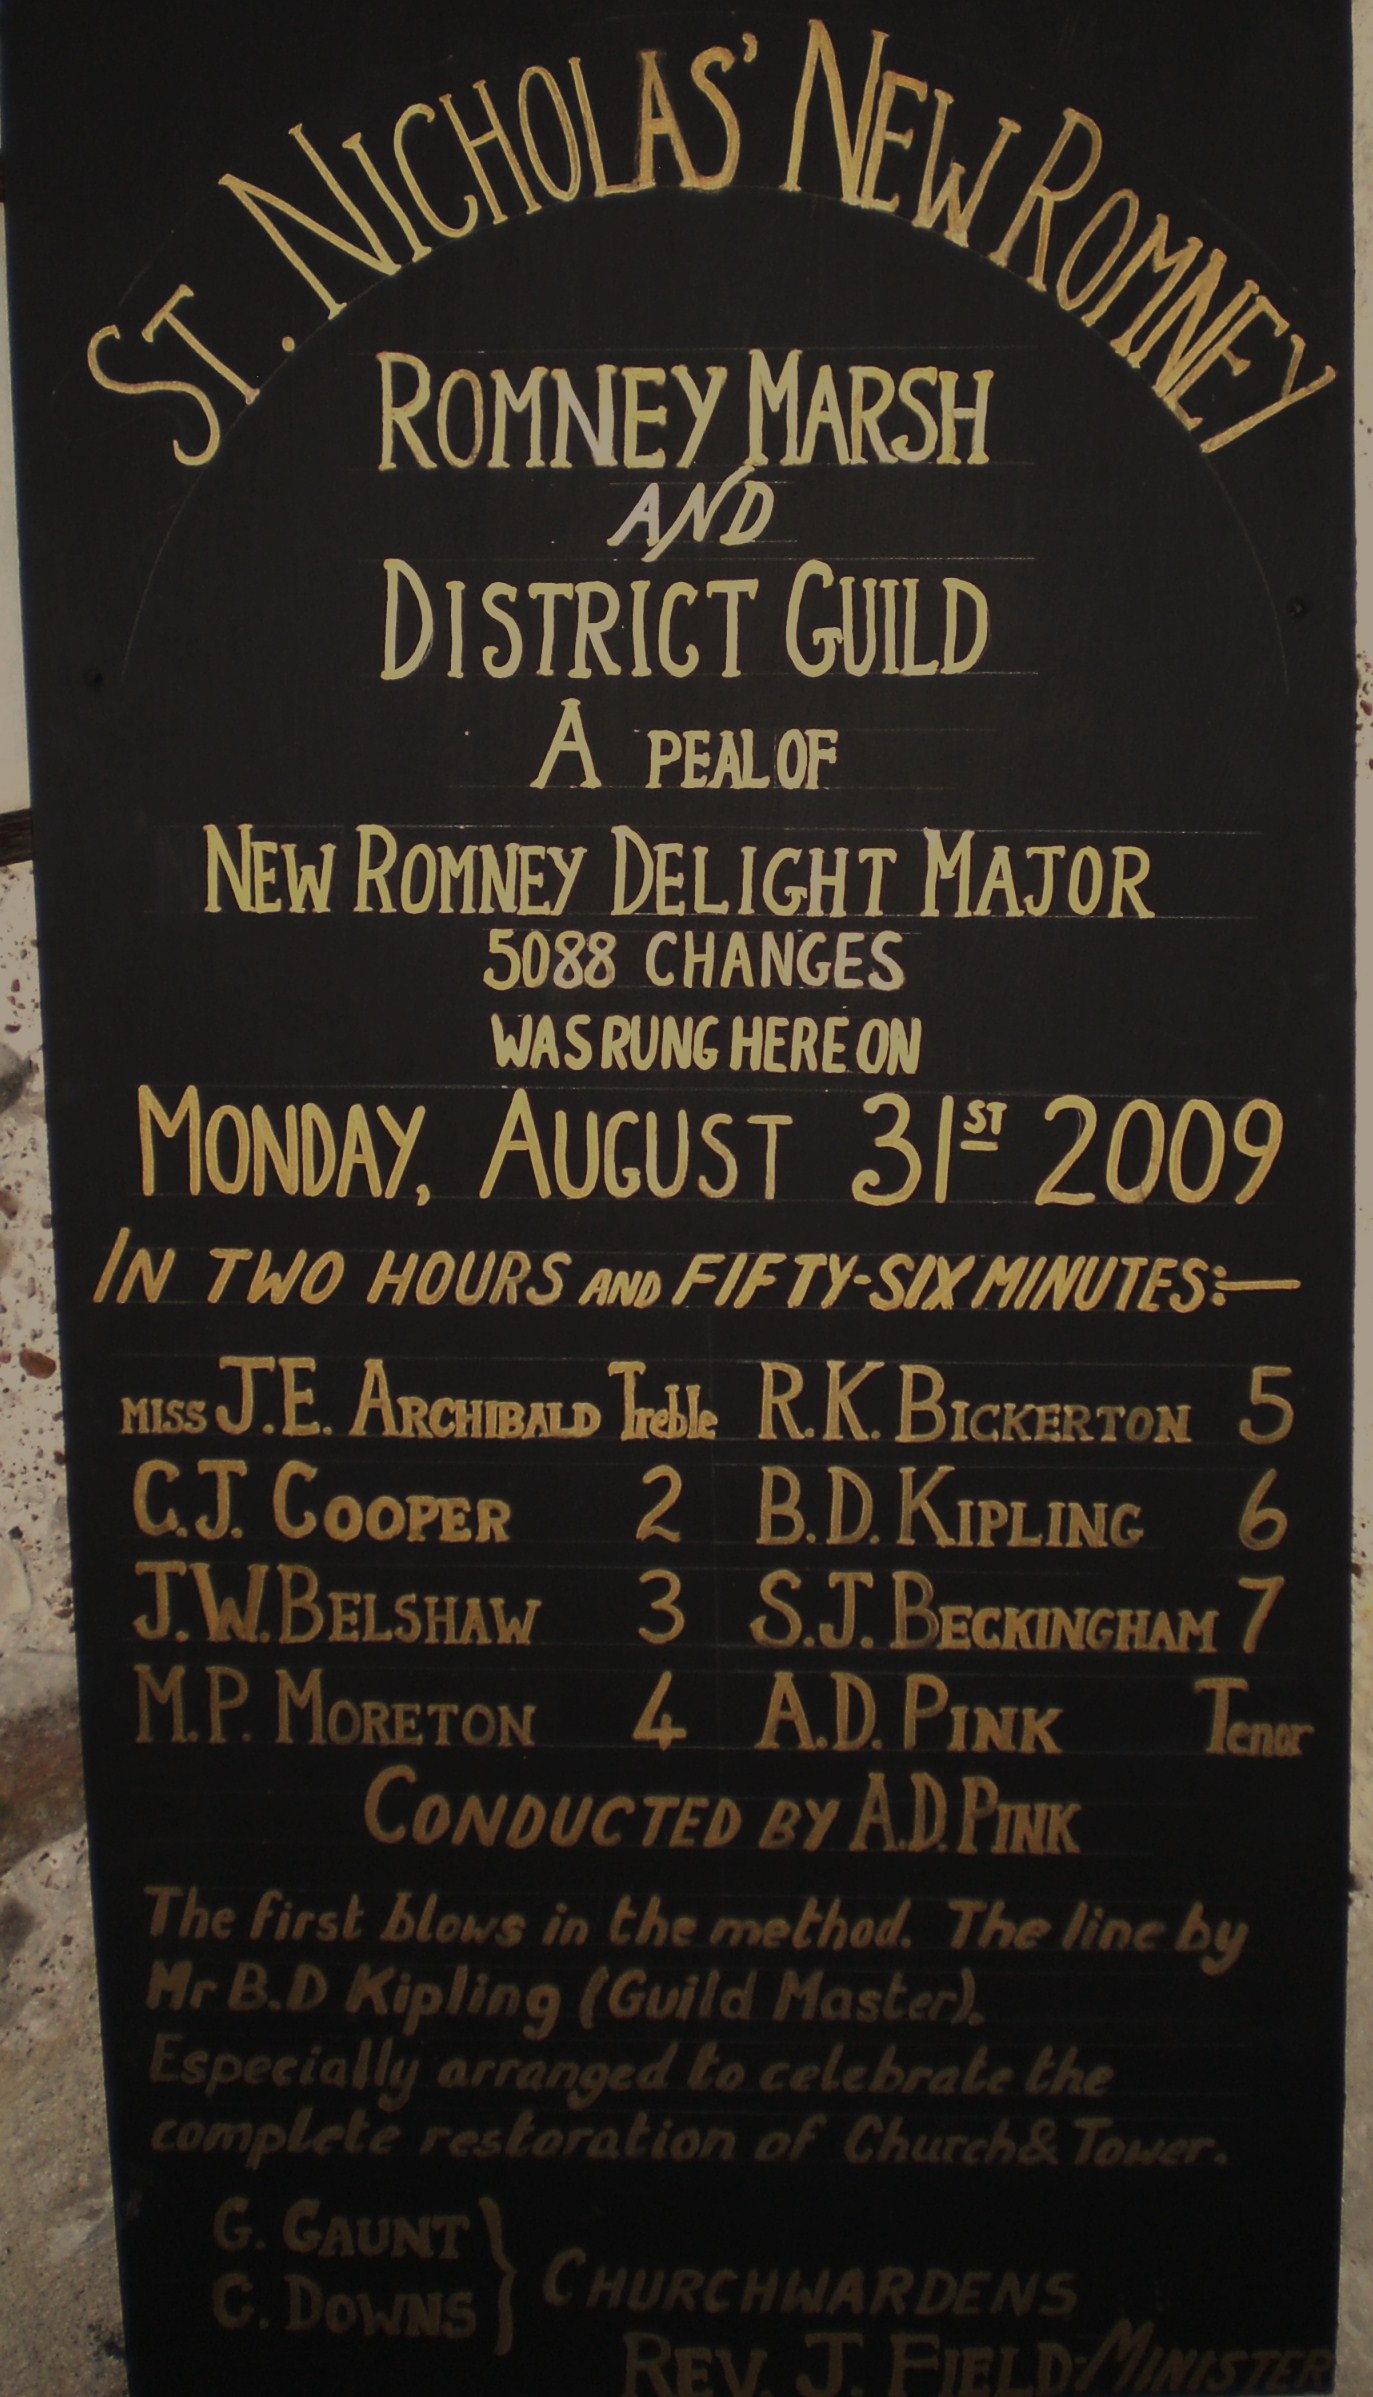 ST. NICHOLAS' NEW ROMNEY
ROMNEY MARSH
AND
DISTRICT GUILD
A PEAL OF
NEW ROMNEY DELIGHT MAJOR
5088 CHANGES
WAS RUNG HERE ON
MONDAY, AUGUST 31ST 2009
IN TWO HOURS AND FIFTY-SIX MINUTES:—
MISS J.E. ARCHIBALD Treble R.K. BICKERTON 5
C.J. COOPER 2 B.D. KIPLING 6
J.W. BELSHAW 3 S.J. BECKINGHAM 7
M.P. MORETON 4 A.D. PINK Tenor
CONDUCTED BY A.D. PINK
The first blows in the method. The line by
Mr B.D Kipling (Guild Master).
Especially arranged to celebrate the
complete restoration of Church & Tower.
G. GAUNT
C. DOWNS } CHURCHWARDENS
REV. J. FIELD-MINISTER